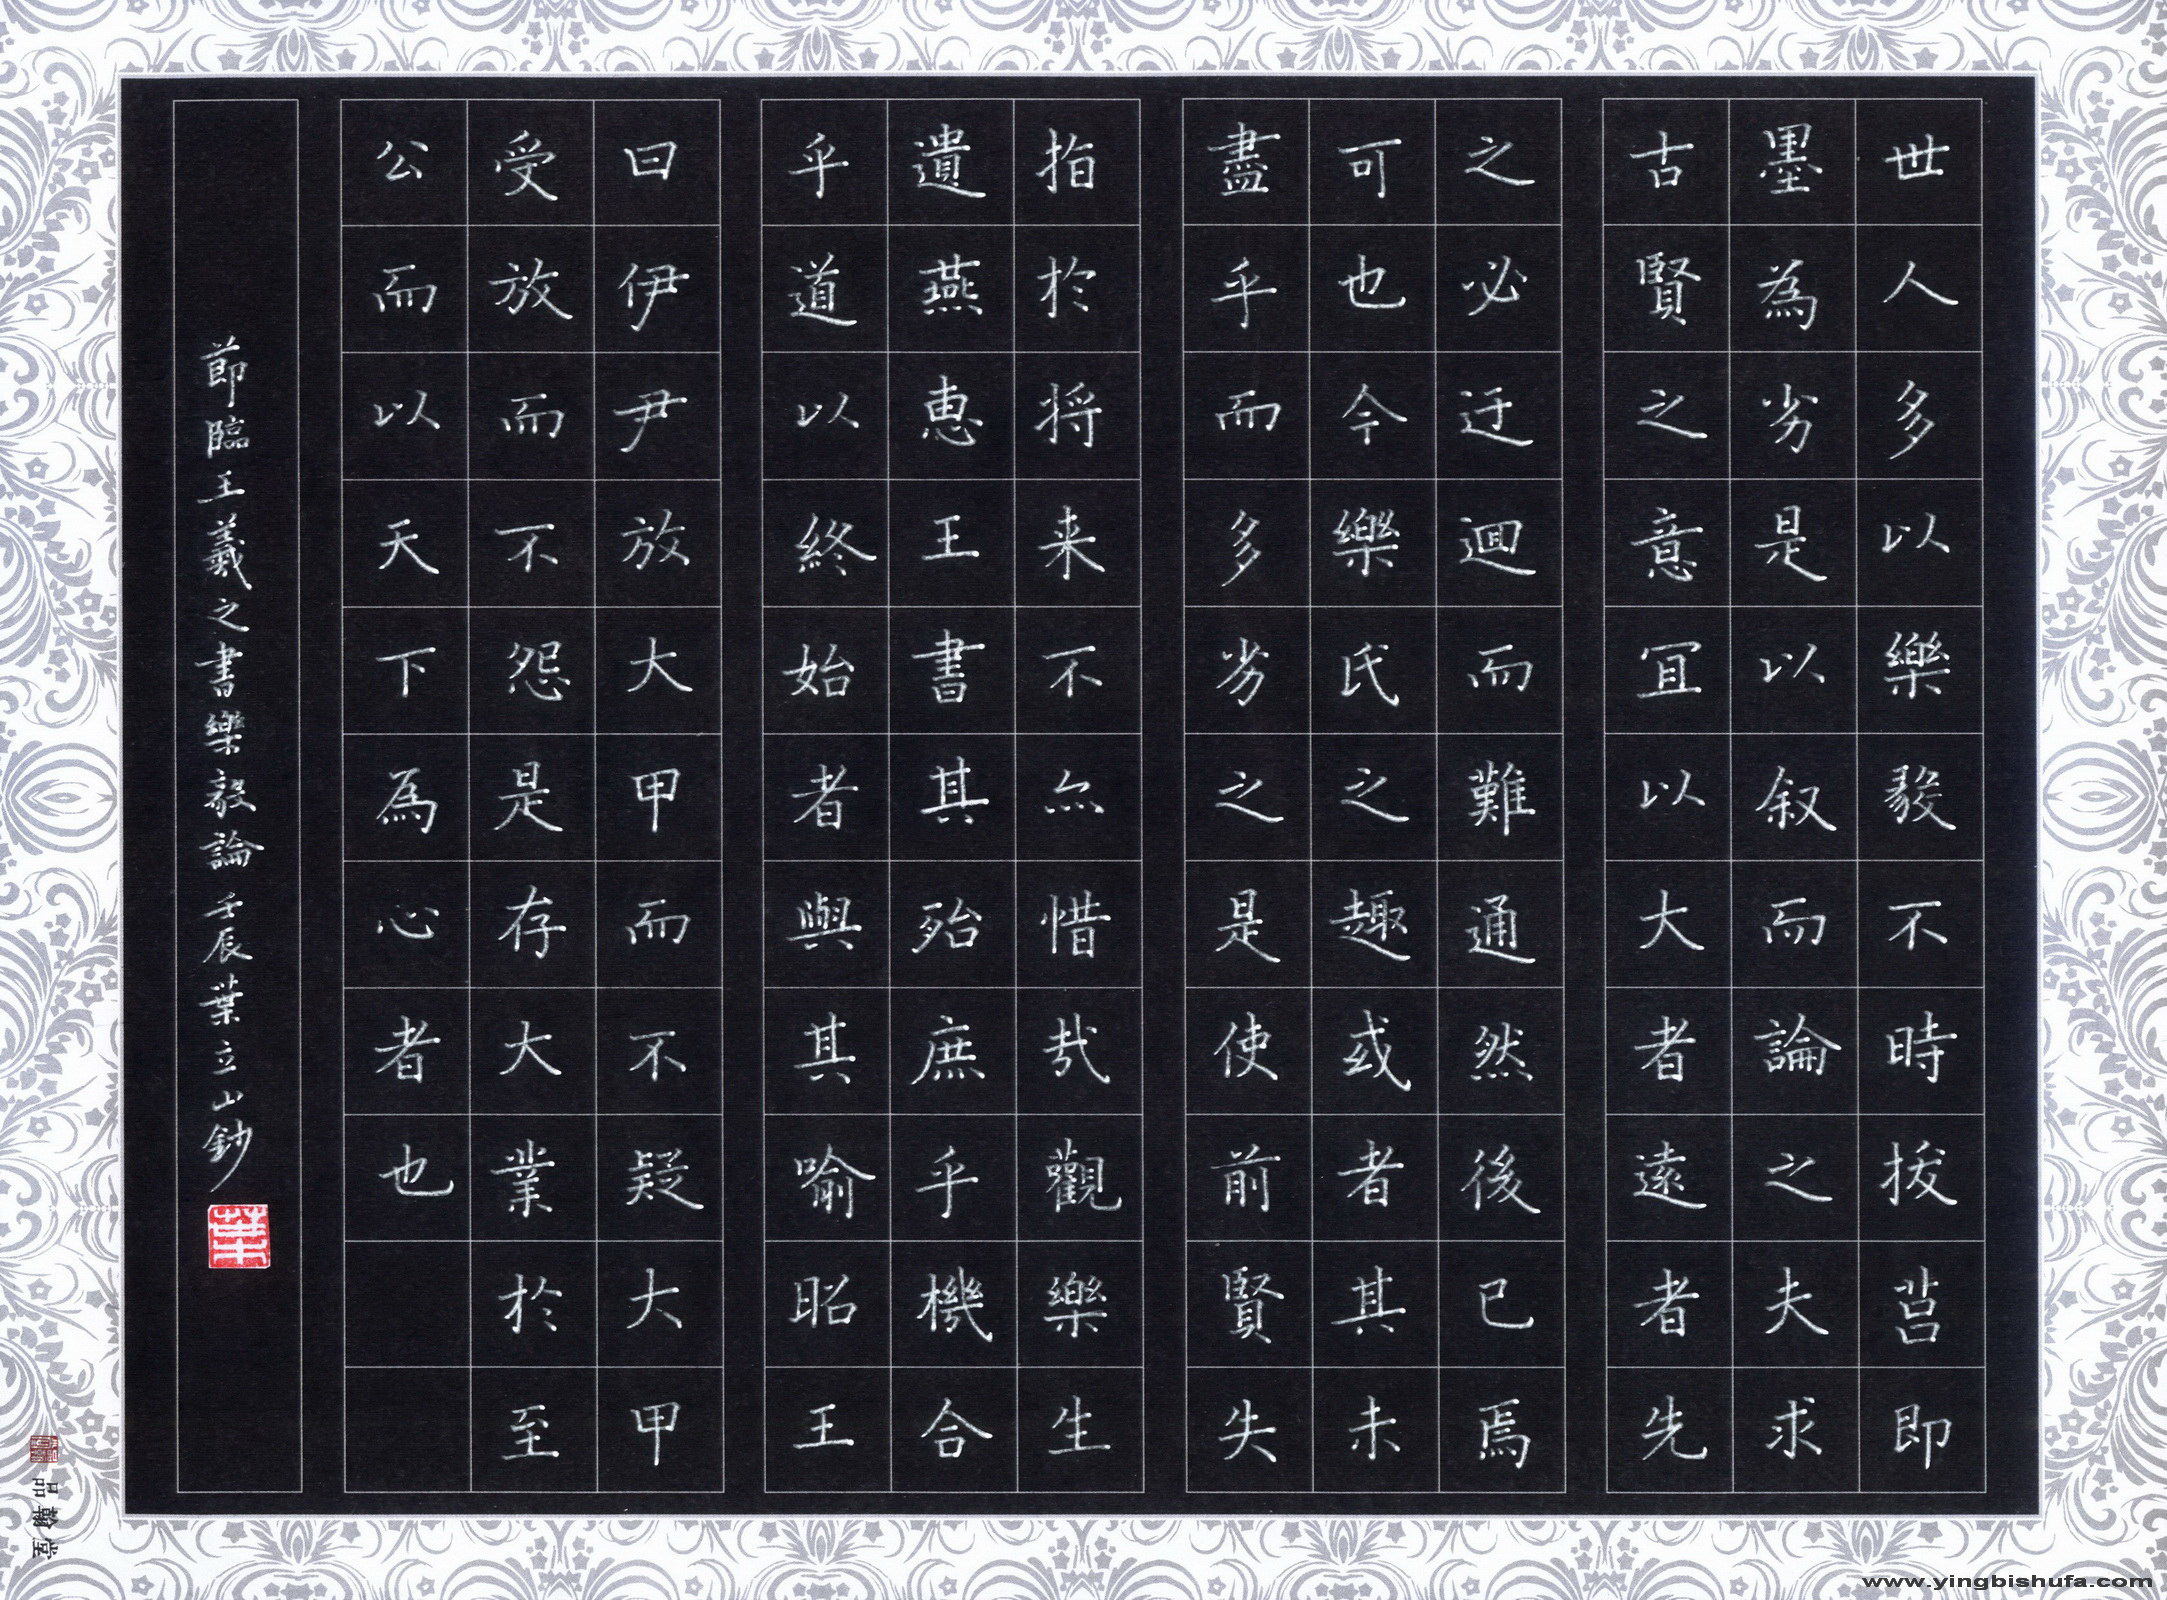 世人多以樂毅不時拔莒即
墨為劣是以叙而論之夫求
古賢之意宜以大者遠者先
之必迂迴而難通然後已焉
可也今樂氏之趣或者其未
盡乎而多劣之是使前賢失
指於将来不亦惜哉觀樂生
遺燕惠王書其殆庶乎機合
乎道以終始者與其喻昭王
曰伊尹放大甲而不疑大甲
受放而不怨是存大業於至
公而以天下為心者也
節臨王羲之書樂毅論 壬辰葉立山鈔
葉
品翰堂
www.yingbishufa.com